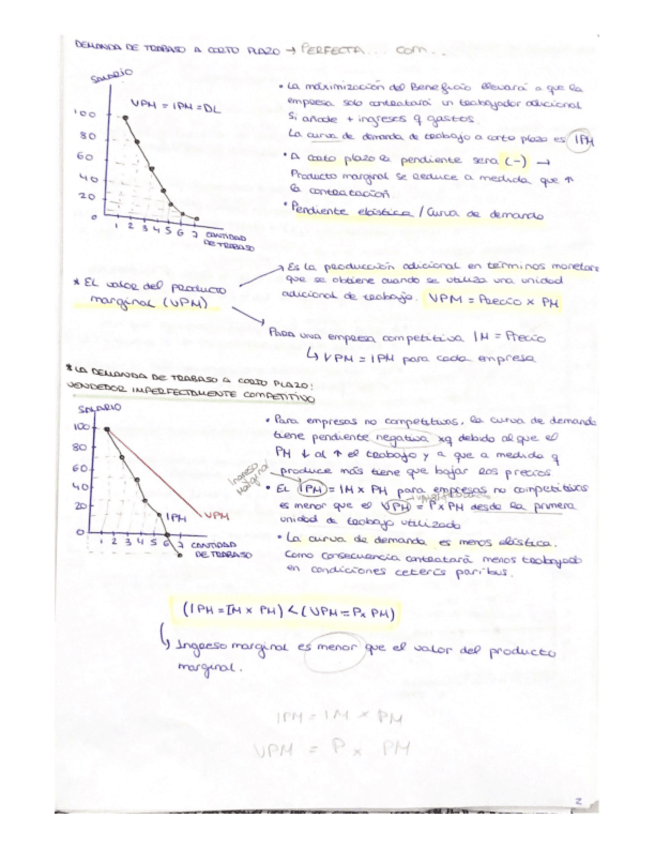 DEMANDA DE TRABAJO A CORTO PLAZO → PERFECTA... com..
SALARIO
VPM = IPM = DL
100
80
60
40
20
0
1 2 3 4 5 6 7 CANTIDAD
DE TRABAJO
• La maximización del Beneficio llevará a que la
empresa solo contratará un trabajador adicional
Si añade + ingresos q gastos.
La curva de demanda de trabajo a corto plazo es IPM
• A corto plazo la pendiente será (-) →
Producto marginal se reduce a medida que ↑
la contratación
• Pendiente elástica / Curva de demanda
* EL valor del producto
marginal (VPM)
Es la producción adicional en términos monetar
que se obtiene cuando se utiliza una unidad
adicional de trabajo. VPM = Precio x PM
Para una empresa competitiva IM = Precio
↳ VPM = IPM para cada empresa
* LA DEMANDA DE TRABAJO A CORTO PLAZO:
VENDEDOR IMPERFECTAMENTE COMPETITIVO
SALARIO
100
80
60
40
20
0
IPM
VPM
1 2 3 4 5 6 7 CANTIDAD
DE TRABAJO
• Para empresas no competitivas, la curva de demanda
tiene pendiente negativa xq debido al que el
PM ↓ al ↑ el trabajo y a que a medida q
produce más tiene que bajar los precios
Ingreso
Marginal
• EL IPM = IM x PM para empresas no competitivas
es menor que el VPM = P x PM desde la primera
unidad de trabajo utilizado
• La curva de demanda es menos elástica.
Como consecuencia contratará menos trabajado
en condiciones ceteris paribus.
(IPM = IM x PM) < (VPM = P x PM)
↳ Ingreso marginal es menor que el valor del producto
marginal.
IPM = IM x PM
VPM = P x PM
2